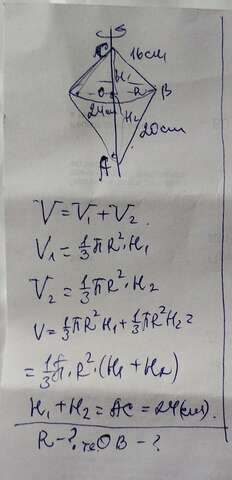 S
C
16cm
H₁
O
R
B
24cm
H₂
20cm
A
V=V₁+V₂
V₁=1/3πR²·H₁
V₂=1/3πR²·H₂
V=1/3πR²H₁+1/3πR²H₂=
=1/3π·R²·(H₁+H₂)
H₁+H₂=AC=24(см).
R-? те OB-?